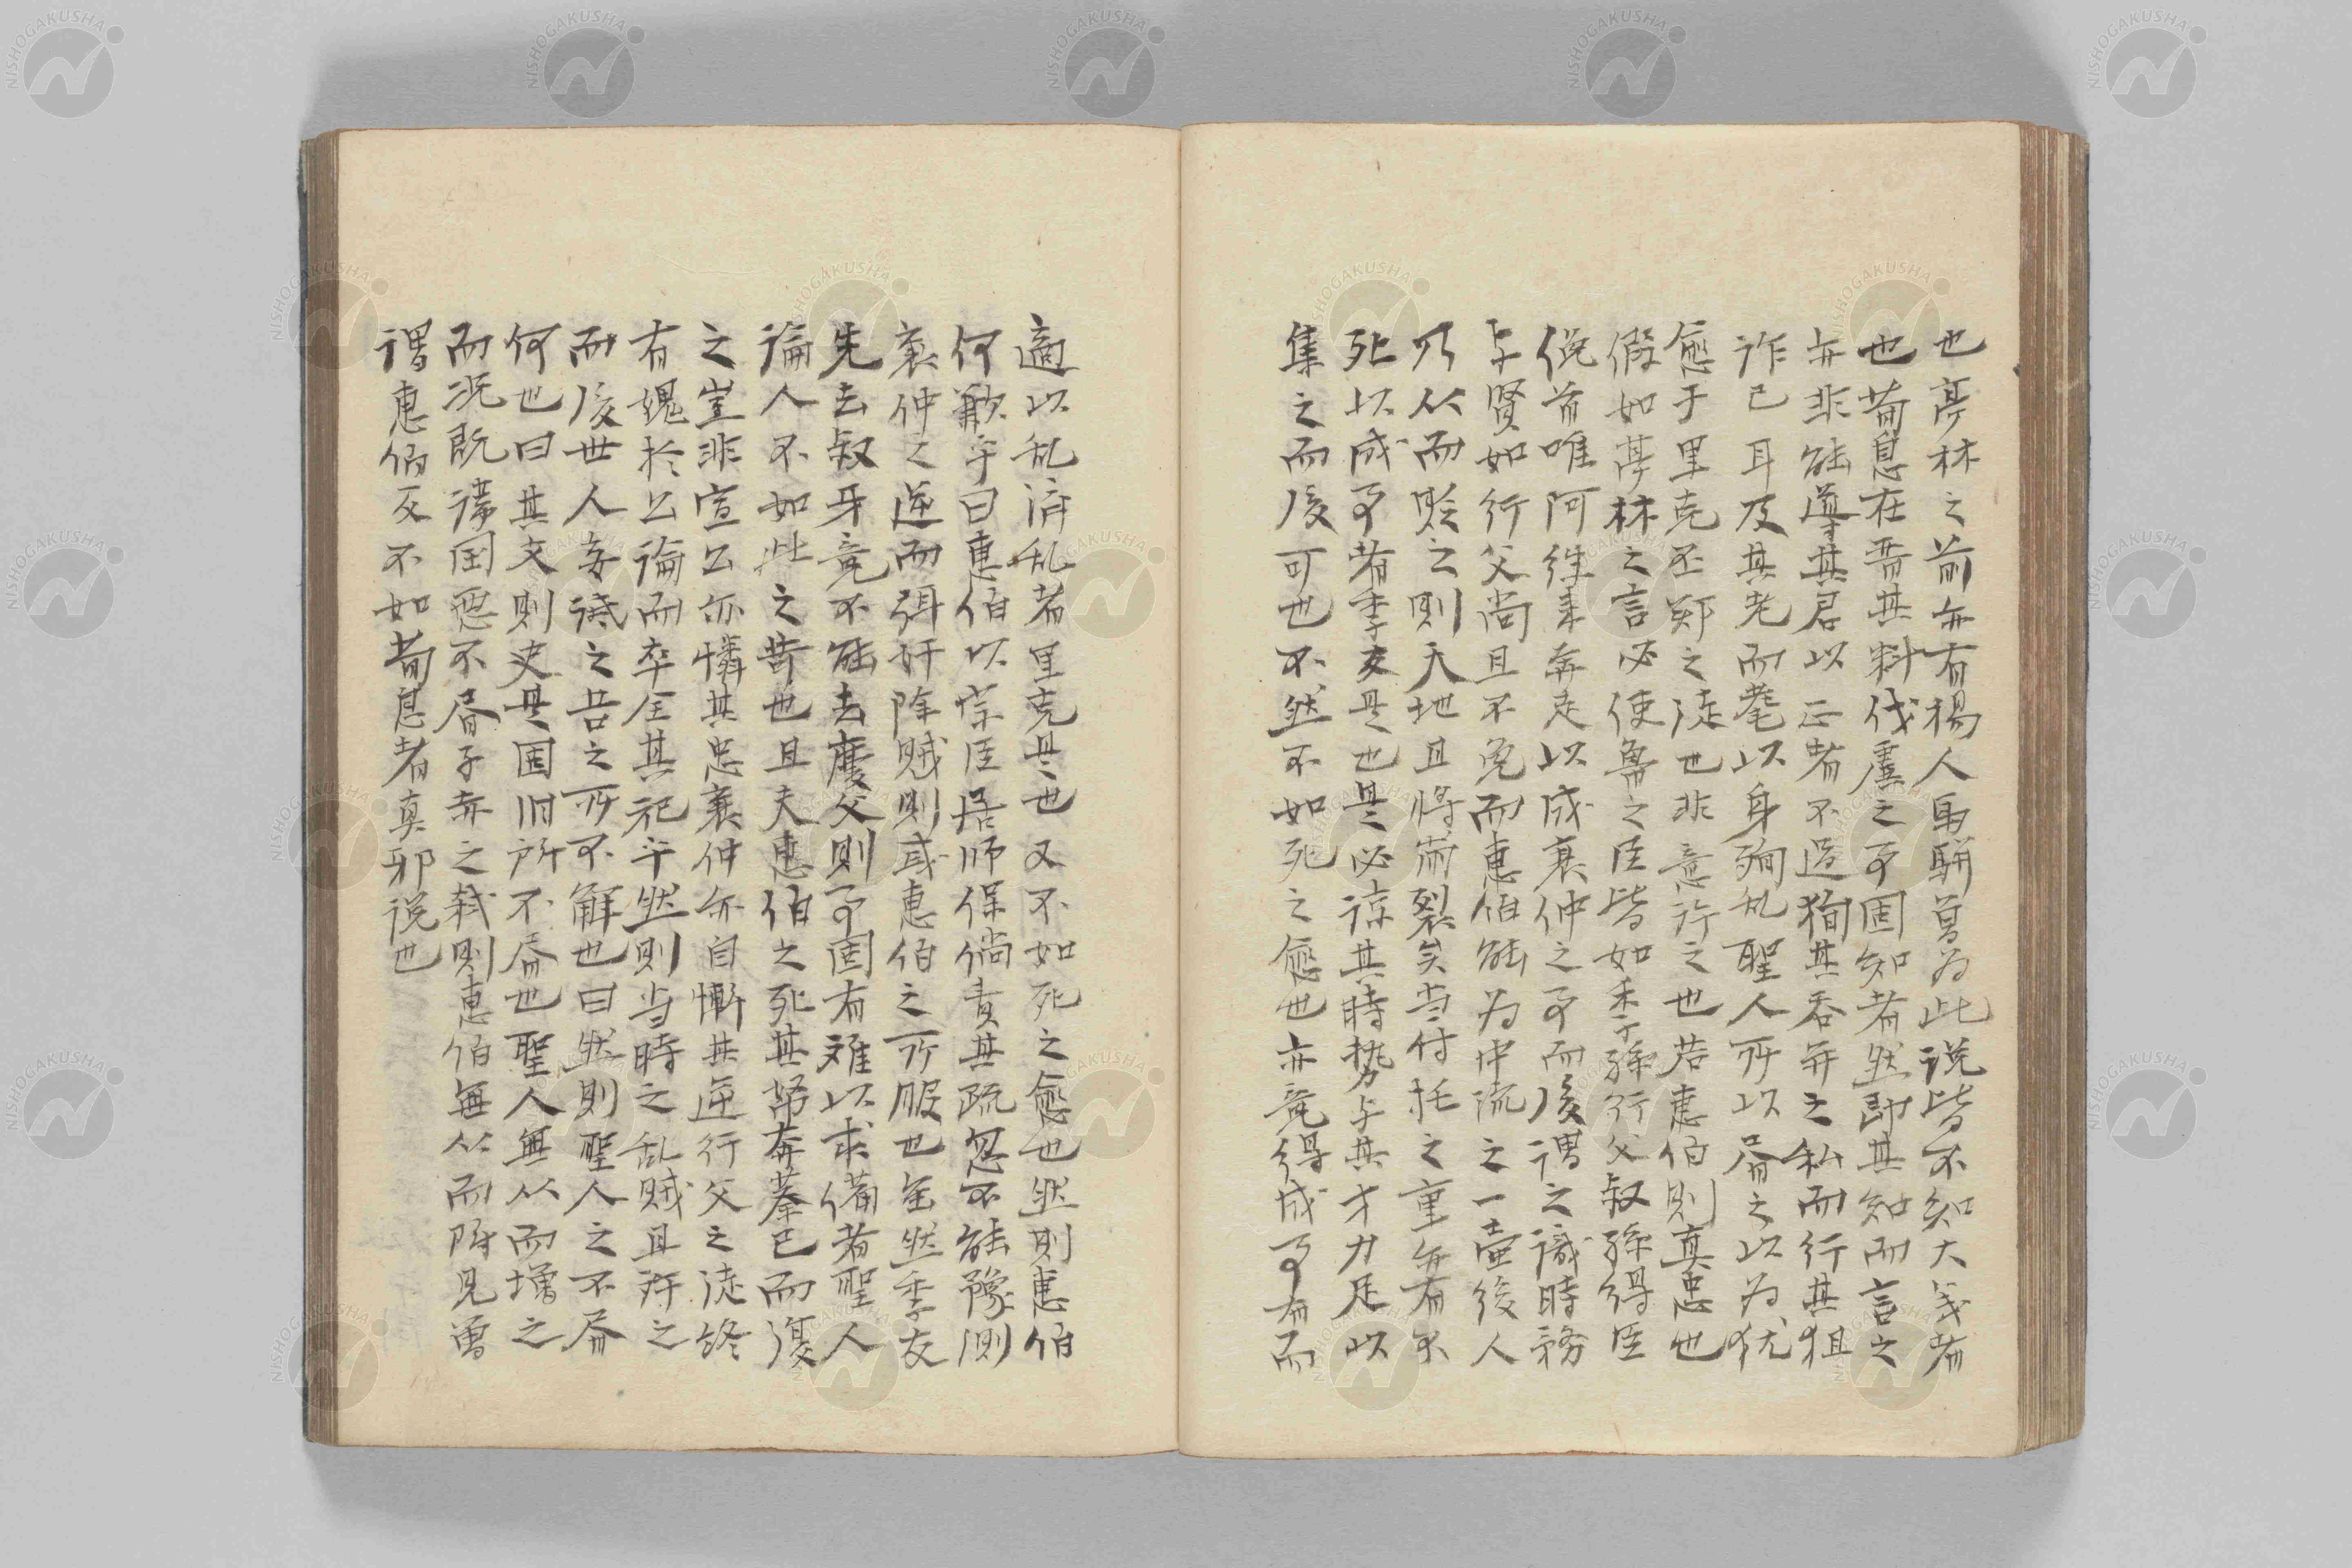 也亭林之前亦有楊人馬駢曾為此説皆不知大義者
也荀息在晋其料伐虞之事固知者然即其知而言之
亦非能導其君以正者不過狥其吞并之私而行其狙
詐已耳及其老而耄以身殉乱聖人所以屑之以为犹
愈于里克丕鄭之徒也非意許之也若惠伯則真忠也
假如亭林之言必使魯之臣皆如季孫行父叔孫得臣
俛首唯阿往来奔走以成襄仲之事而後謂之識時務
与賢如行父尚且不免而惠伯能为中流之一壷後人
乃从而賒之則天地且将崩裂矣当付托之重無有不
死以成事者季友是也是必諒其時勢与其才力足以
集之而後可也不然不如死之愈也亦竟得成事者而
適以乱済乱者里克是也又不如死之愈也然則惠伯
何歉乎曰惠伯以宗臣居師保倘責其疏忽不能豫測
襄仲之逆而弭奸除賊則或惠伯之所服也虽然季友
先去叔牙竟不能去慶父則事固有难以求備者聖人
論人不如此之苛也且夫惠伯之死其帑奔蔡已而復
之豈非宣公亦憐其忠襄仲亦自慚其逆行父之徒終
有媿於公論而卒全其祀乎然則当時之乱賊且許之
而後世人妄詆之吾之所不解也曰然則聖人之不屑
何也曰其文則史是固旧所不屑也聖人無从而増之
而况既諱国悪不屑子赤之弑則惠伯無从而附見曾
謂惠伯反不如荀息者真邪説也